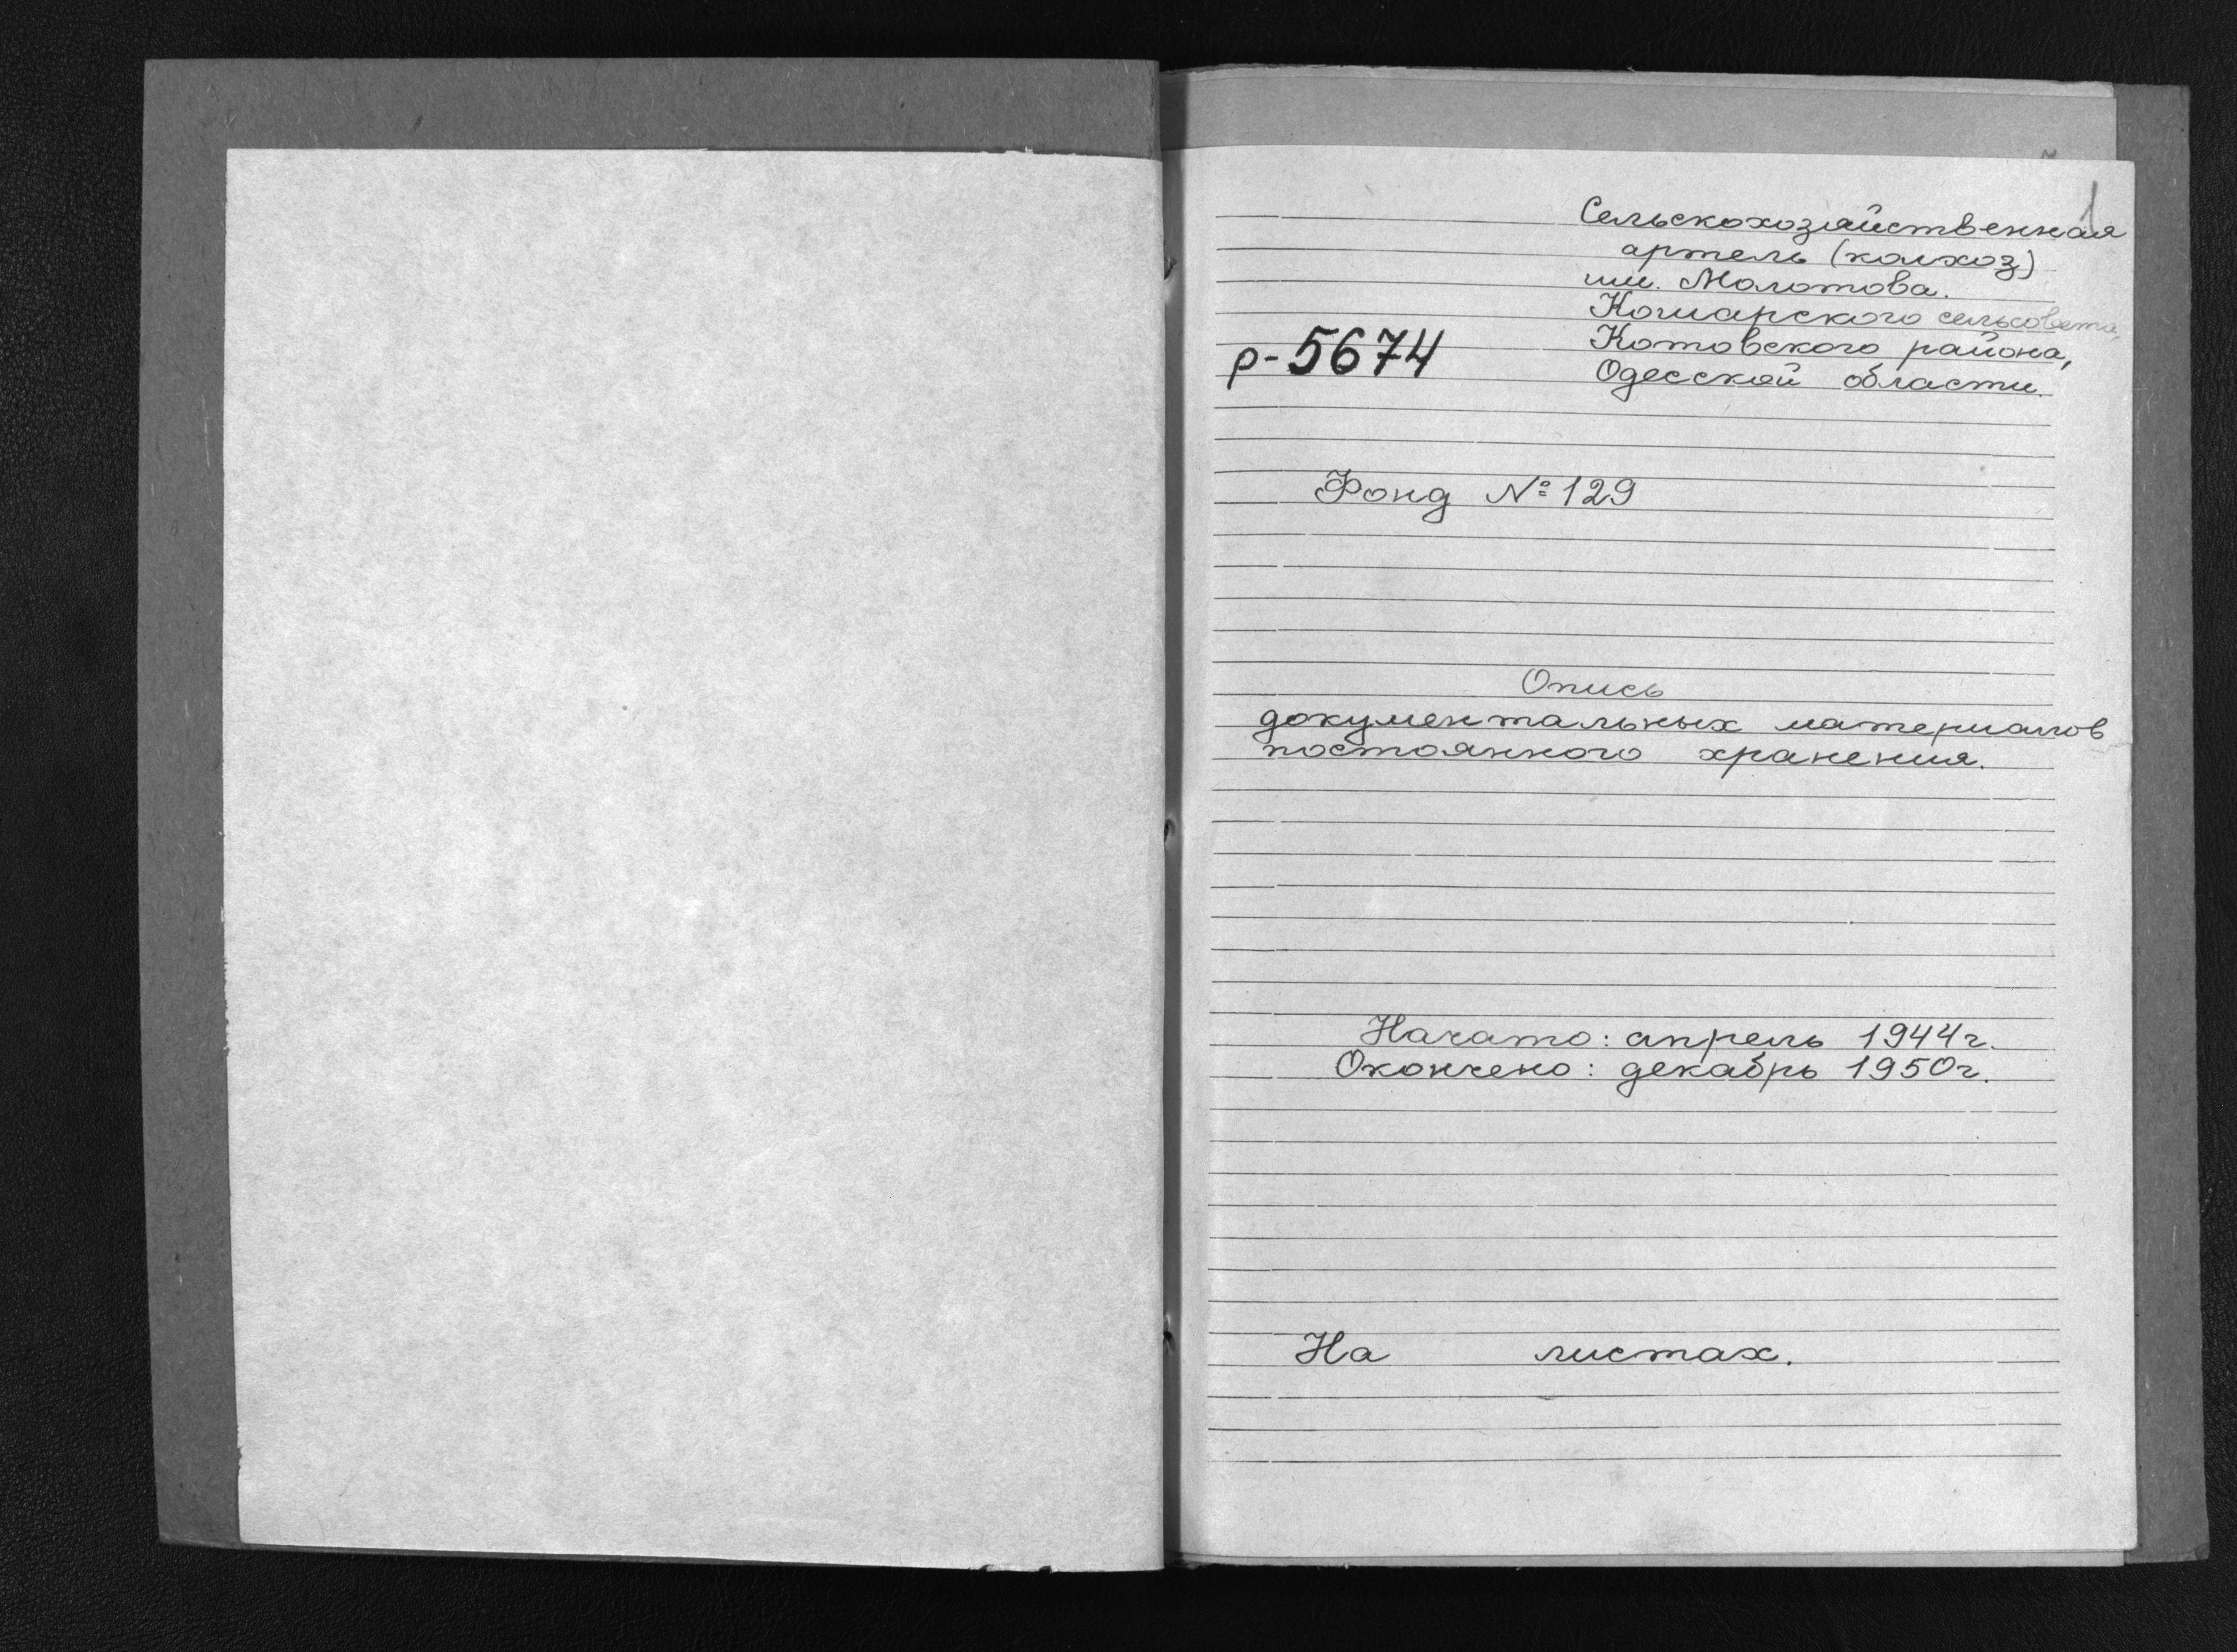 1
Сельскохозяйственная
артель (колхоз)
им. Молотова.
Кошарского сельсовета,
Котовского района,
Одесской области.
р-5674
Фонд №129
Опись
документальных материалов
постоянного хранения.
Начато: апрель 1944г.
Окончено: декабрь 1950г.
На листах.